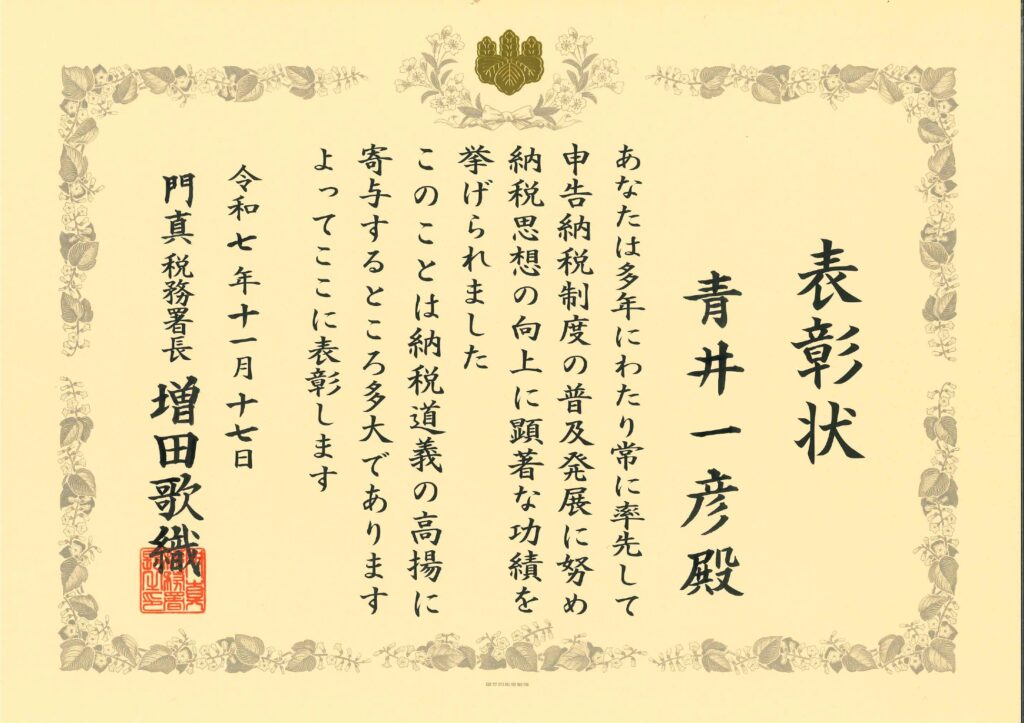 表彰状
青井一彦殿
あなたは多年にわたり常に率先して
申告納税制度の普及発展に努め
納税思想の向上に顕著な功績を
挙げられました
このことは納税道義の高揚に
寄与するところ多大であります
よってここに表彰します
令和七年十一月十七日
門真税務署長 増田歌織